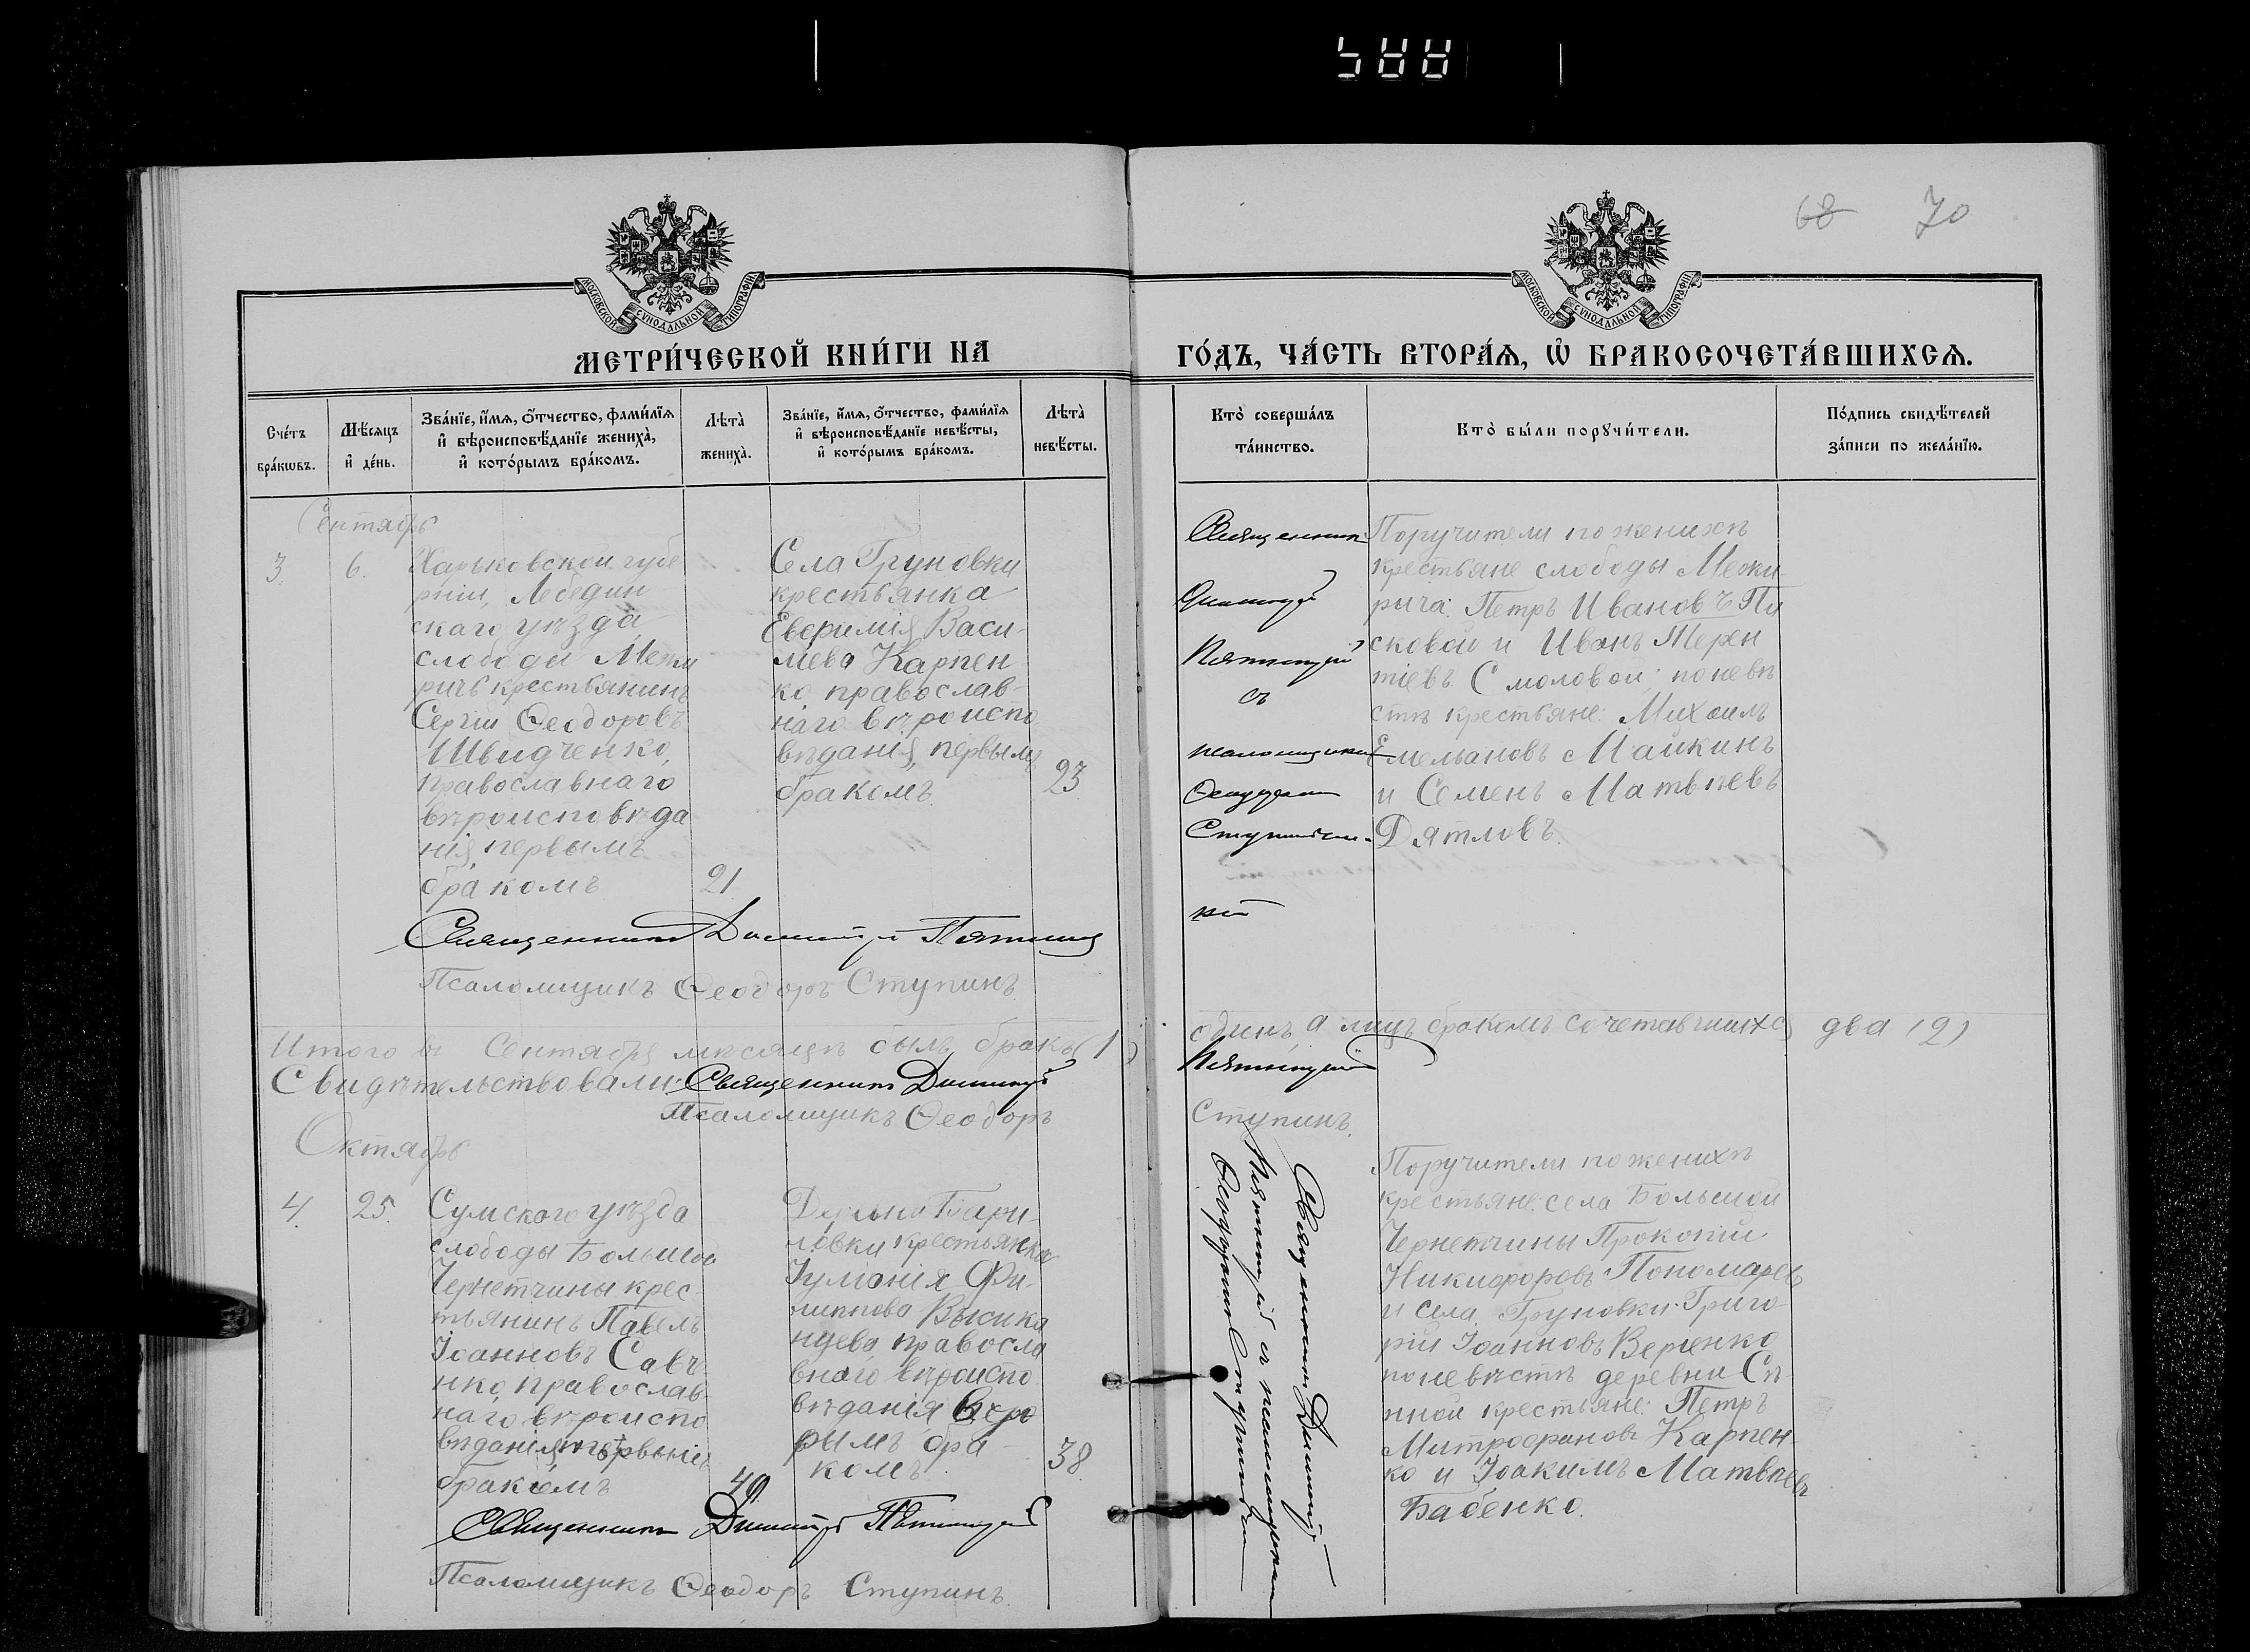 588
68 70
МОСКОВСКОЙ СѴНОДАЛЬНОЙ ТИПОГРАФІИ
МОСКОВСКОЙ СѴНОДАЛЬНОЙ ТИПОГРАФІИ
МЕТРИ́ЧЕСКОЙ КНИ́ГИ НА
ГО́ДЪ, ЧА́СТЬ ВТОРА́Ѧ, Ѡ҆ БРАКОСОЧЕТА́ВШИХСѦ.
Сче́тъ
бра́кωвъ.
Мѣ́сяцъ
и҆ де́нь.
Зва́нїе, и҆́мѧ, о҆́тчество, фами́лїѧ
и҆ вѣроисповѣ́данїе жениха̀,
и҆ кото́рымъ бра́комъ.
Лѣта̀
жениха̀.
Зва́нїе, и҆́мѧ, о҆́тчество, фами́лїѧ
и҆ вѣроисповѣ́данїе невѣ́сты,
и҆ кото́рымъ бра́комъ.
Лѣта̀
невѣ́сты.
Кто̀ соверша́лъ
та́инство.
Кто̀ бы́ли порꙋчи́тели.
По́дпись свидѣ́телей
за́писи по жела́нїю.
Сентябрь
3. 6.
Харьковской губе
рніи, Лебедин
скаго уѣзда
слободы Межи
ричъ крестьянинъ
Сергій Ѳеодоровъ
Швидченко,
православнаго
вѣроисповѣда
нія, первымъ
бракомъ
21
Села Груновки
крестьянка
Евфимія Васи-
лиева Карпен
ко православ-
наго вѣроиспо
вѣданія, первымъ
бракомъ.
23
Священникъ
Димитрій
Пятницкій
съ
псаломщикомъ
Ѳеодоромъ
Ступины-
мъ
Поручители по женихѣ
крестьяне слободы Межи
рича: Петръ Ивановъ Пи
сковой и Иванъ Терен
тіевъ Смоловой; по невѣ
стѣ крестьяне: Михаилъ
Емельановъ Майкинъ
и Семенъ Матвѣевъ
Дятловъ.
Священникъ Димитрій Пятницкій
Псаломщикъ Ѳеодоръ Ступинъ.
Итого въ Сентябрѣ мѣсяцѣ былъ бракъ (1)
одинъ, а лицъ бракомъ сочетавшихся два (2)
Свидѣтельствовали: Священникъ Димитрій
Пятницкій
Псаломщикъ Ѳеодоръ
Ступинъ.
Октябрь
4. 25.
Сумскаго уѣзда
слободы Большой
Чернетчины крес-
тьянинъ Павелъ
Іоанновъ Савч
нко православ-
наго вѣроиспо
вѣданія, первымъ
бракомъ
40
Деревни Бири-
ловки крестьянка
Іуліанія Фи-
липпова Высика
нцева, правосла
внаго вѣроиспо
вѣданія, вто
рымъ бра-
комъ.
38
Священникъ Димитрій
Пятницкій съ псаломщикомъ
Ѳеодоромъ Ступинымъ
Поручители по женихѣ
крестьяне: села Большой
Чернетчины Прокопій
Никифоровъ Пономарев
и села Груновки Григо
рій Іоанновъ Верченко
по невѣстѣ деревни Сѣ
нной крестьяне: Петръ
Митрофановъ Карпен-
ко и Іоакимъ Матвѣевъ
Бабенко.
Священникъ Димитрій Пятницкій
Псаломщикъ Ѳеодоръ Ступинъ.